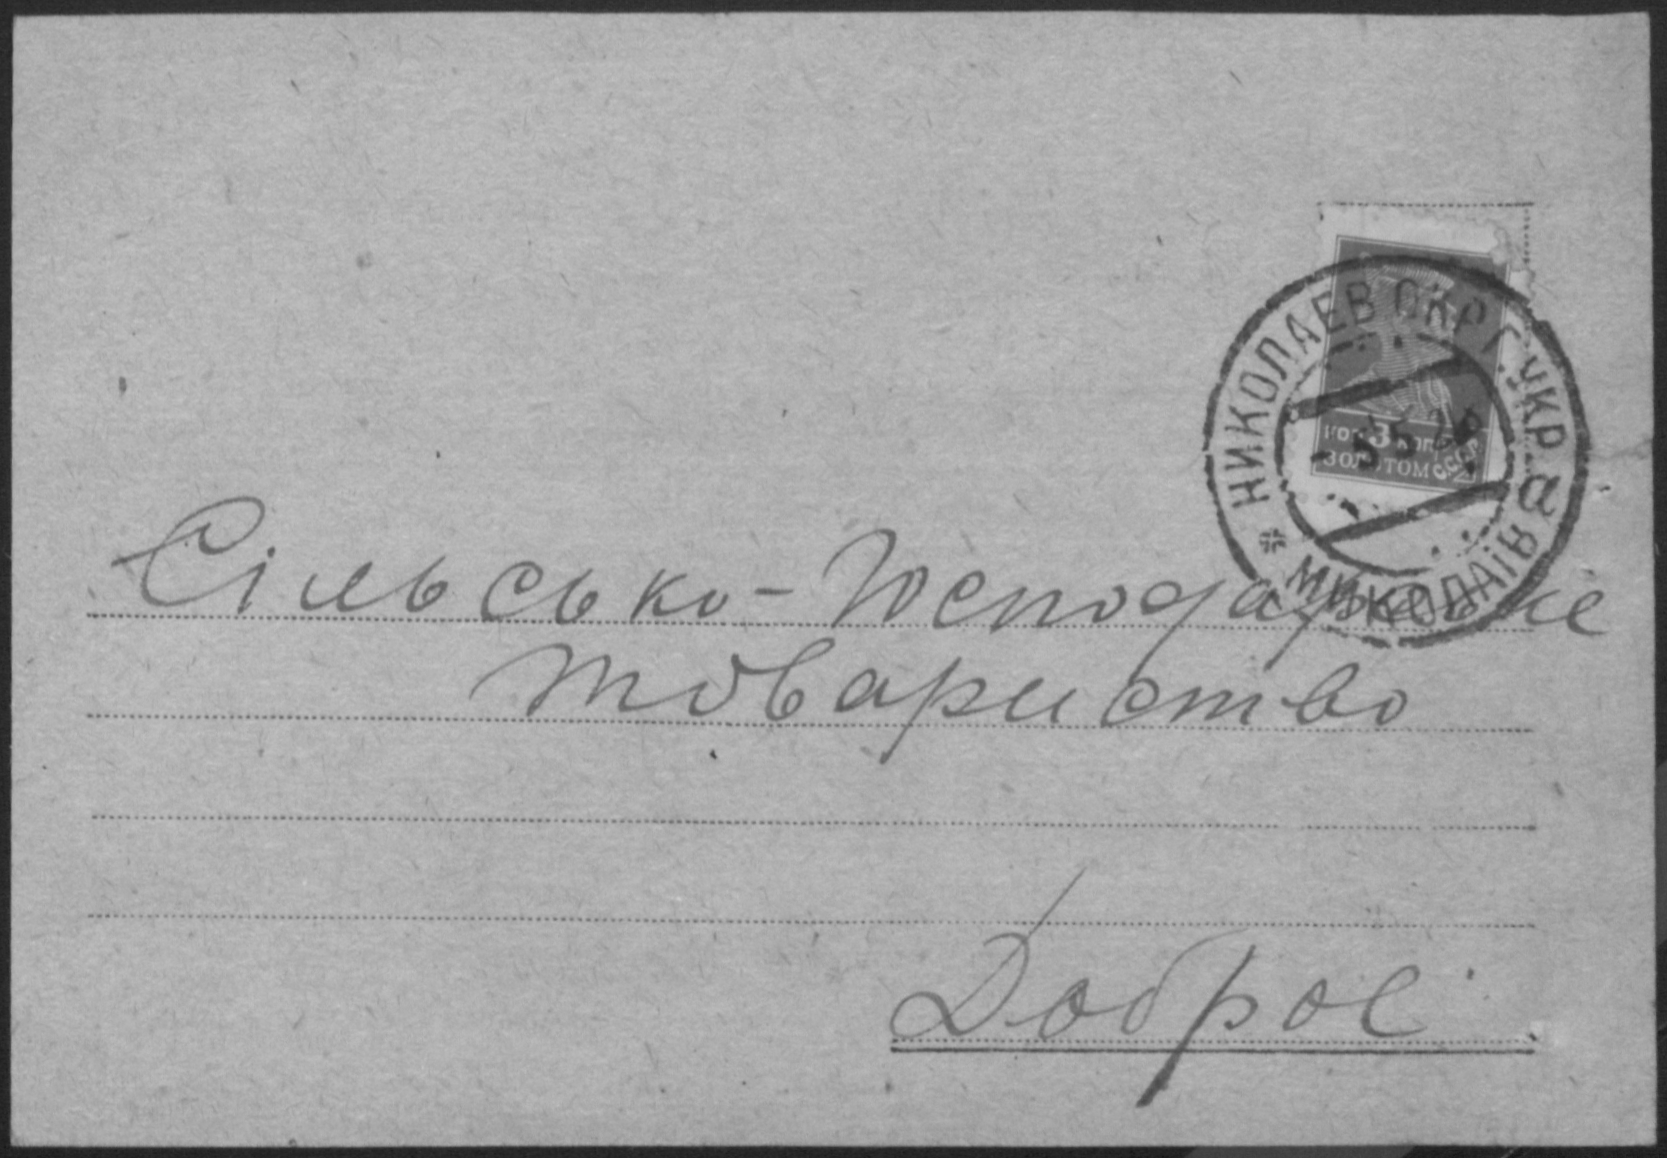 НИКОЛАЕВ ОКР.Г.УКР
а
коп 3 коп
ЗОЛОТОМ С.С.С.Р
МИКОЛАЇВ
Сільсько-Господарське
товариство
Доброє